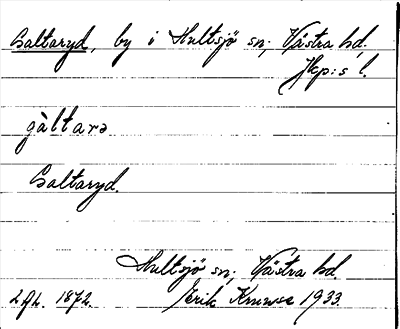 Galtaryd, by i Hultsjö sn; Västra hd.
Jkp:s l.
gàltarə
Galtaryd.
Hultsjö sn; Västra hd.
1872. Erik 1933.